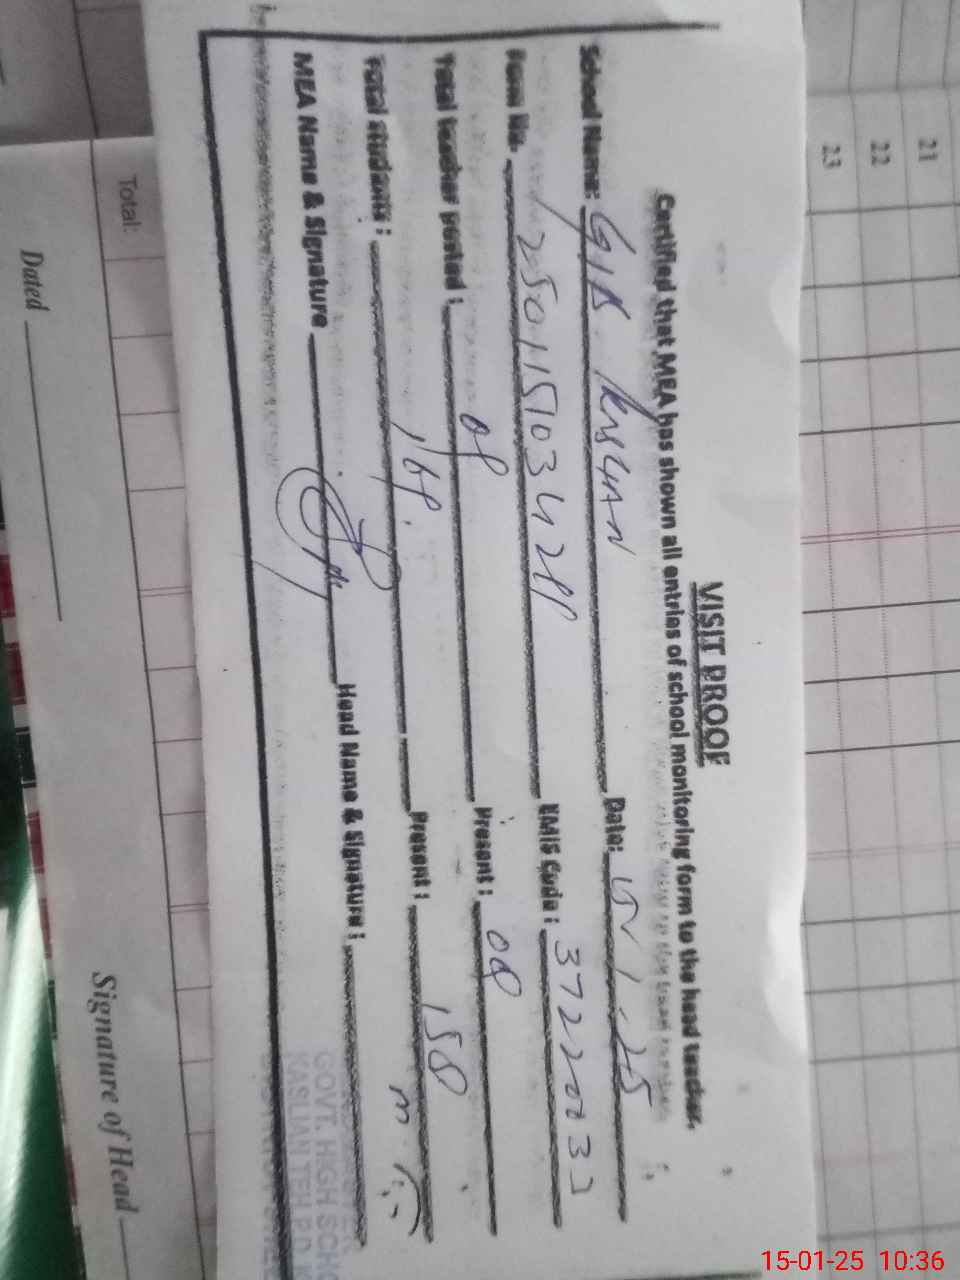 VISIT PROOF
Certified that MEA has shown all entries of school monitoring form to the head teacher.
School Name: Date: 15-1-25
Form No. EMIS Code: 37220033
Total teacher posted: 08 Present: 08
Total students: 168. Present: 158
MEA Name & Signature Head Name & Signature:
GOVT. HIGH SCHO
KASLIAN TEH P.D.
21
22
23
Total:
Dated
Signature of Head
15-01-25 10:36